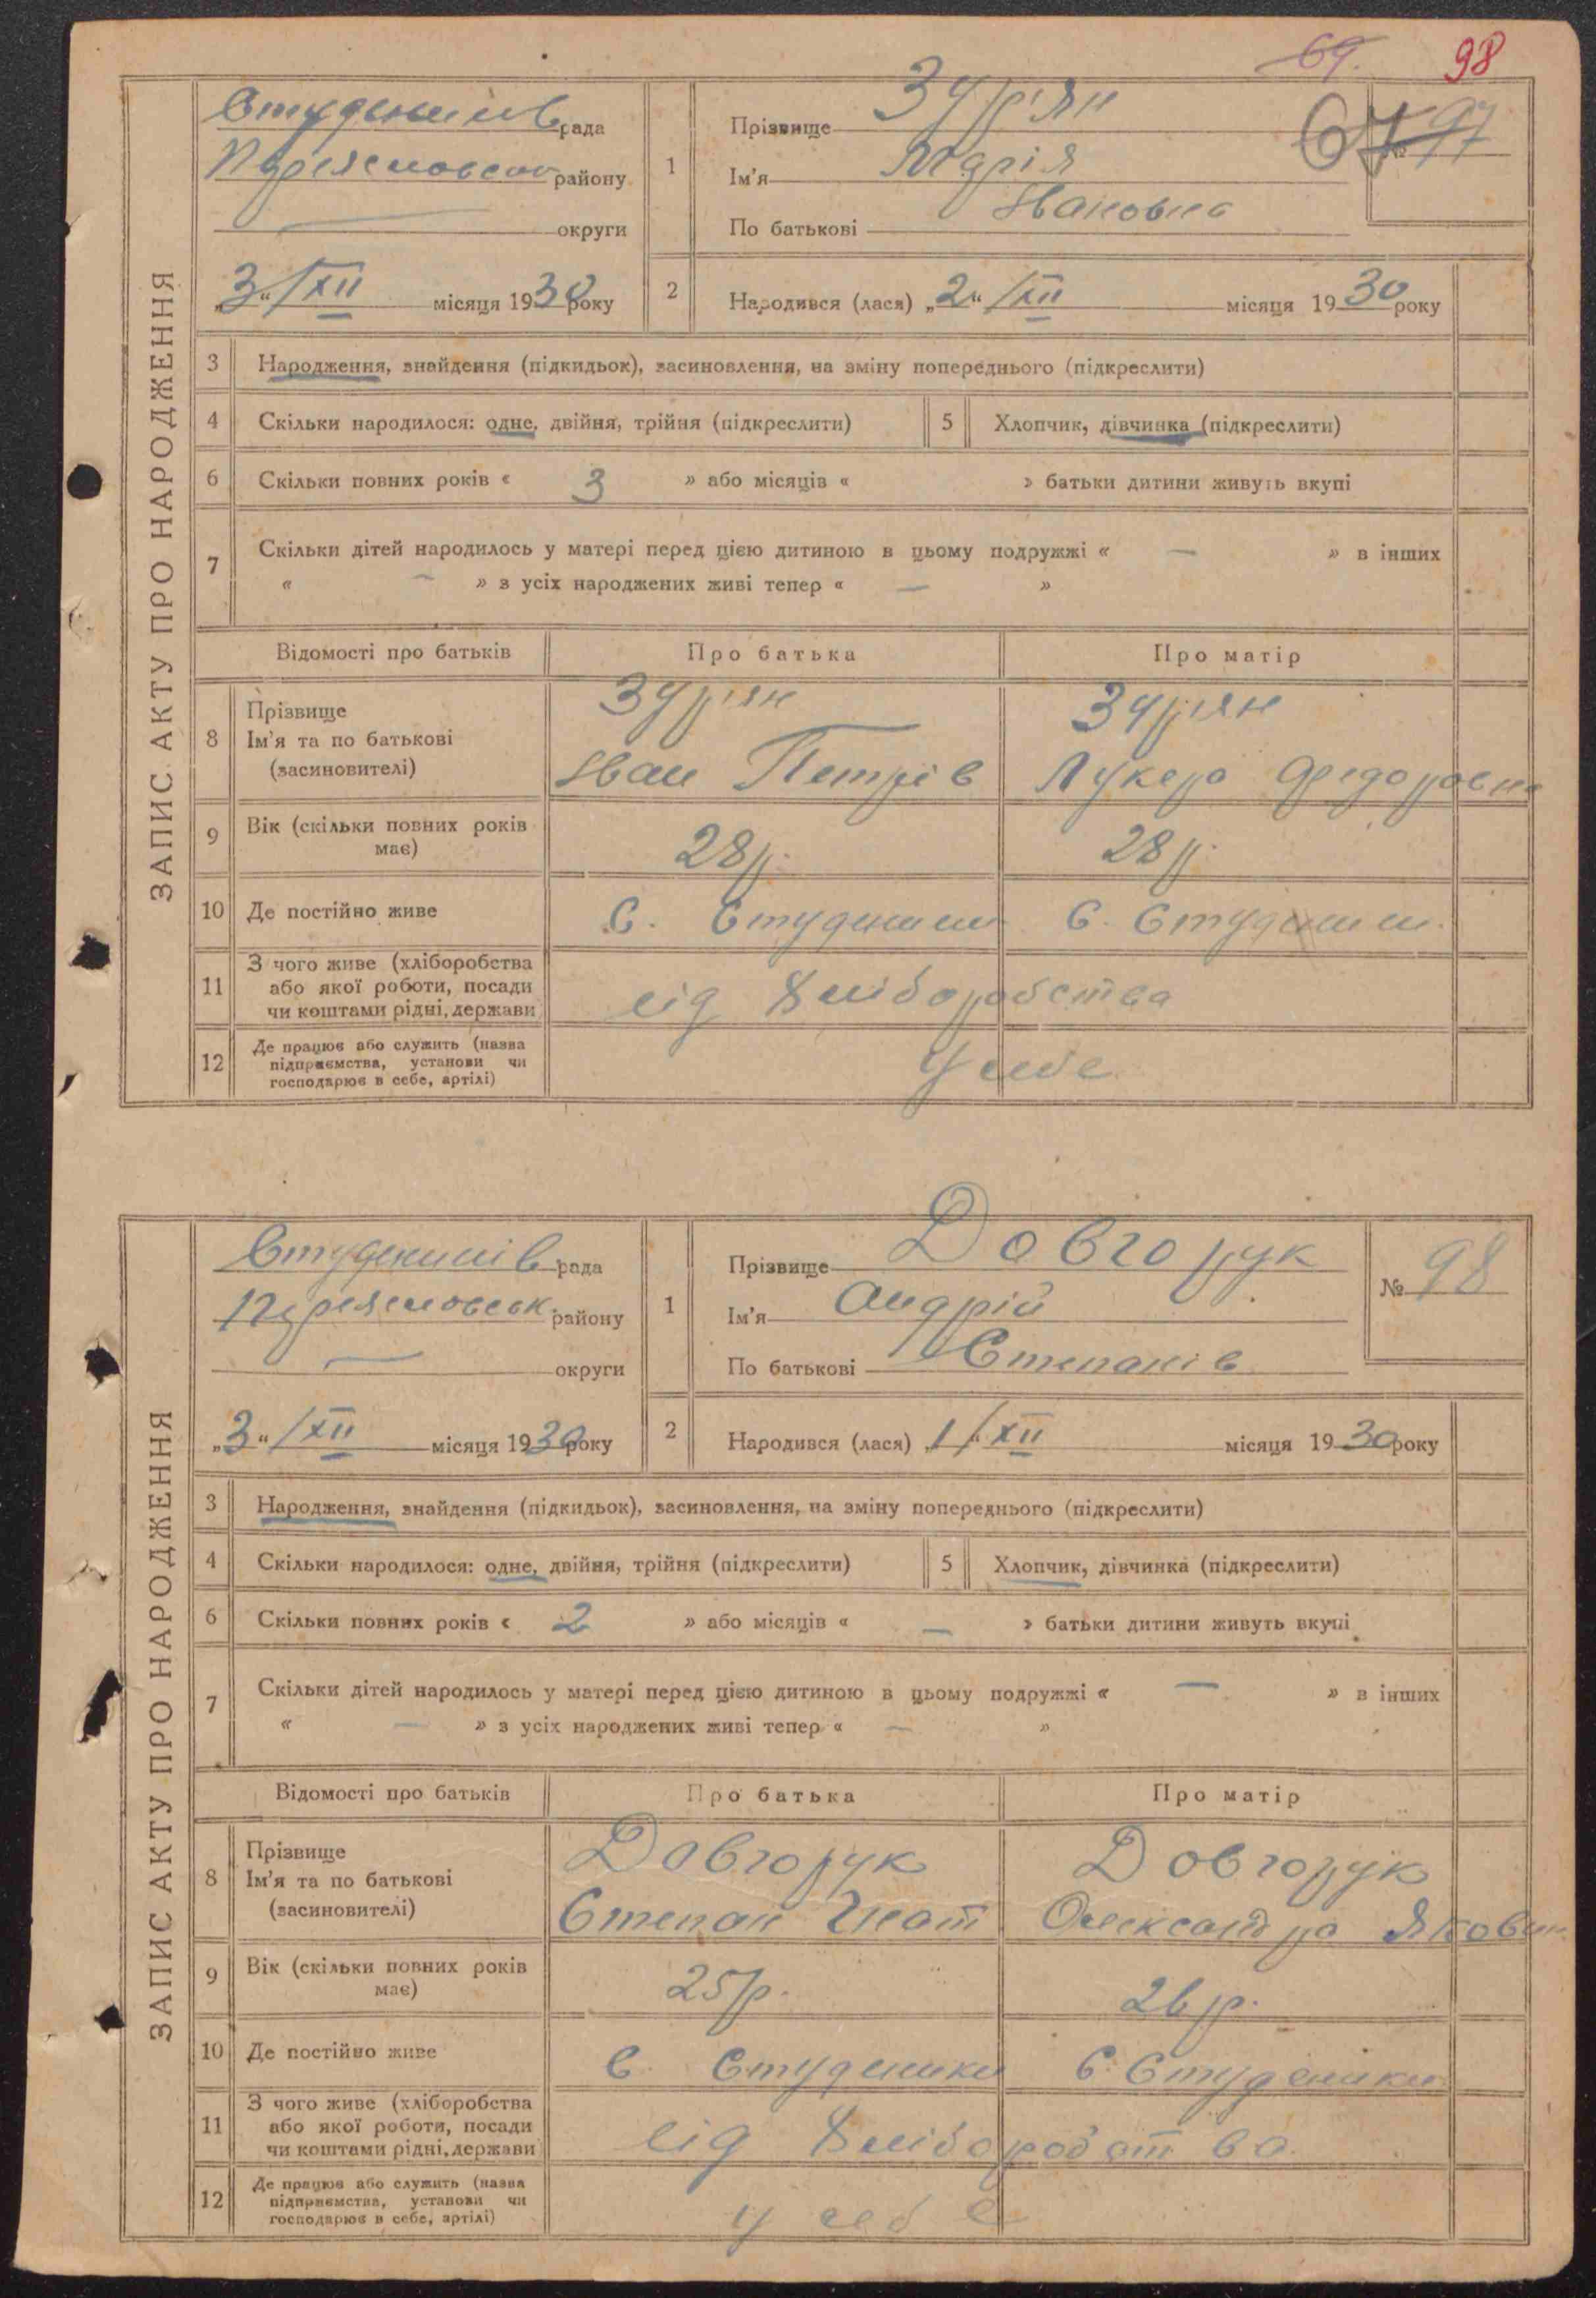 69. 98
ЗАПИС АКТУ ПРО НАРОДЖЕННЯ
Студеників рада
Переясловсько району
округи
„3“/XII місяця 1930 року
1 Прізвище Зур'ян
Ім'я Марія
По батькові Івановна
67 № 97
2 Народився (лася) „2“/XII місяця 1930 року
3 Народження, знайдення (підкидьок), засиновлення, на зміну попереднього (підкреслити)
4 Скільки народилося: одне, двійня, трійня (підкреслити) 5 Хлопчик, дівчинка (підкреслити)
6 Скільки повних років « 3 » або місяців « » батьки дитини живуть вкупі
7 Скільки дітей народилось у матері перед цією дитиною в цьому подружжі « — » в інших
« — » з усіх народжених живі тепер « — »
Відомості про батьків Про батька Про матір
8 Прізвище Зур'ян Зур'ян
Ім'я та по батькові Іван Петрів Лукера Федоровна
(засиновителі)
9 Вік (скільки повних років має) 28 р. 28 р.
10 Де постійно живе С. Студеники С. Студеник.
11 З чого живе (хліборобства
або якої роботи, посади
чи коштами рідні, держави від хліборобства
12 Де працює або служить (назва
підприємства, установи чи
господарює в себе, артілі) У себе
ЗАПИС АКТУ ПРО НАРОДЖЕННЯ
Студеників рада
Переясловськ. району
— округи
„3“/XII місяця 1930 року
1 Прізвище Довгорук
Ім'я Андрій
По батькові Степанів
№ 98
2 Народився (лася) „1“/XII місяця 1930 року
3 Народження, знайдення (підкидьок), засиновлення, на зміну попереднього (підкреслити)
4 Скільки народилося: одне, двійня, трійня (підкреслити) 5 Хлопчик, дівчинка (підкреслити)
6 Скільки повних років « 2 » або місяців « — » батьки дитини живуть вкупі
7 Скільки дітей народилось у матері перед цією дитиною в цьому подружжі « — » в інших
« — » з усіх народжених живі тепер « — »
Відомості про батьків Про батька Про матір
8 Прізвище Довгорук Довгорук
Ім'я та по батькові Степан Гнат Олександра Яковин
(засиновителі)
9 Вік (скільки повних років має) 25 р. 26 р.
10 Де постійно живе С. Студеники С. Студеники
11 З чого живе (хліборобства
або якої роботи, посади
чи коштами рідні, держави від хліборобства
12 Де працює або служить (назва
підприємства, установи чи
господарює в себе, артілі) у себе